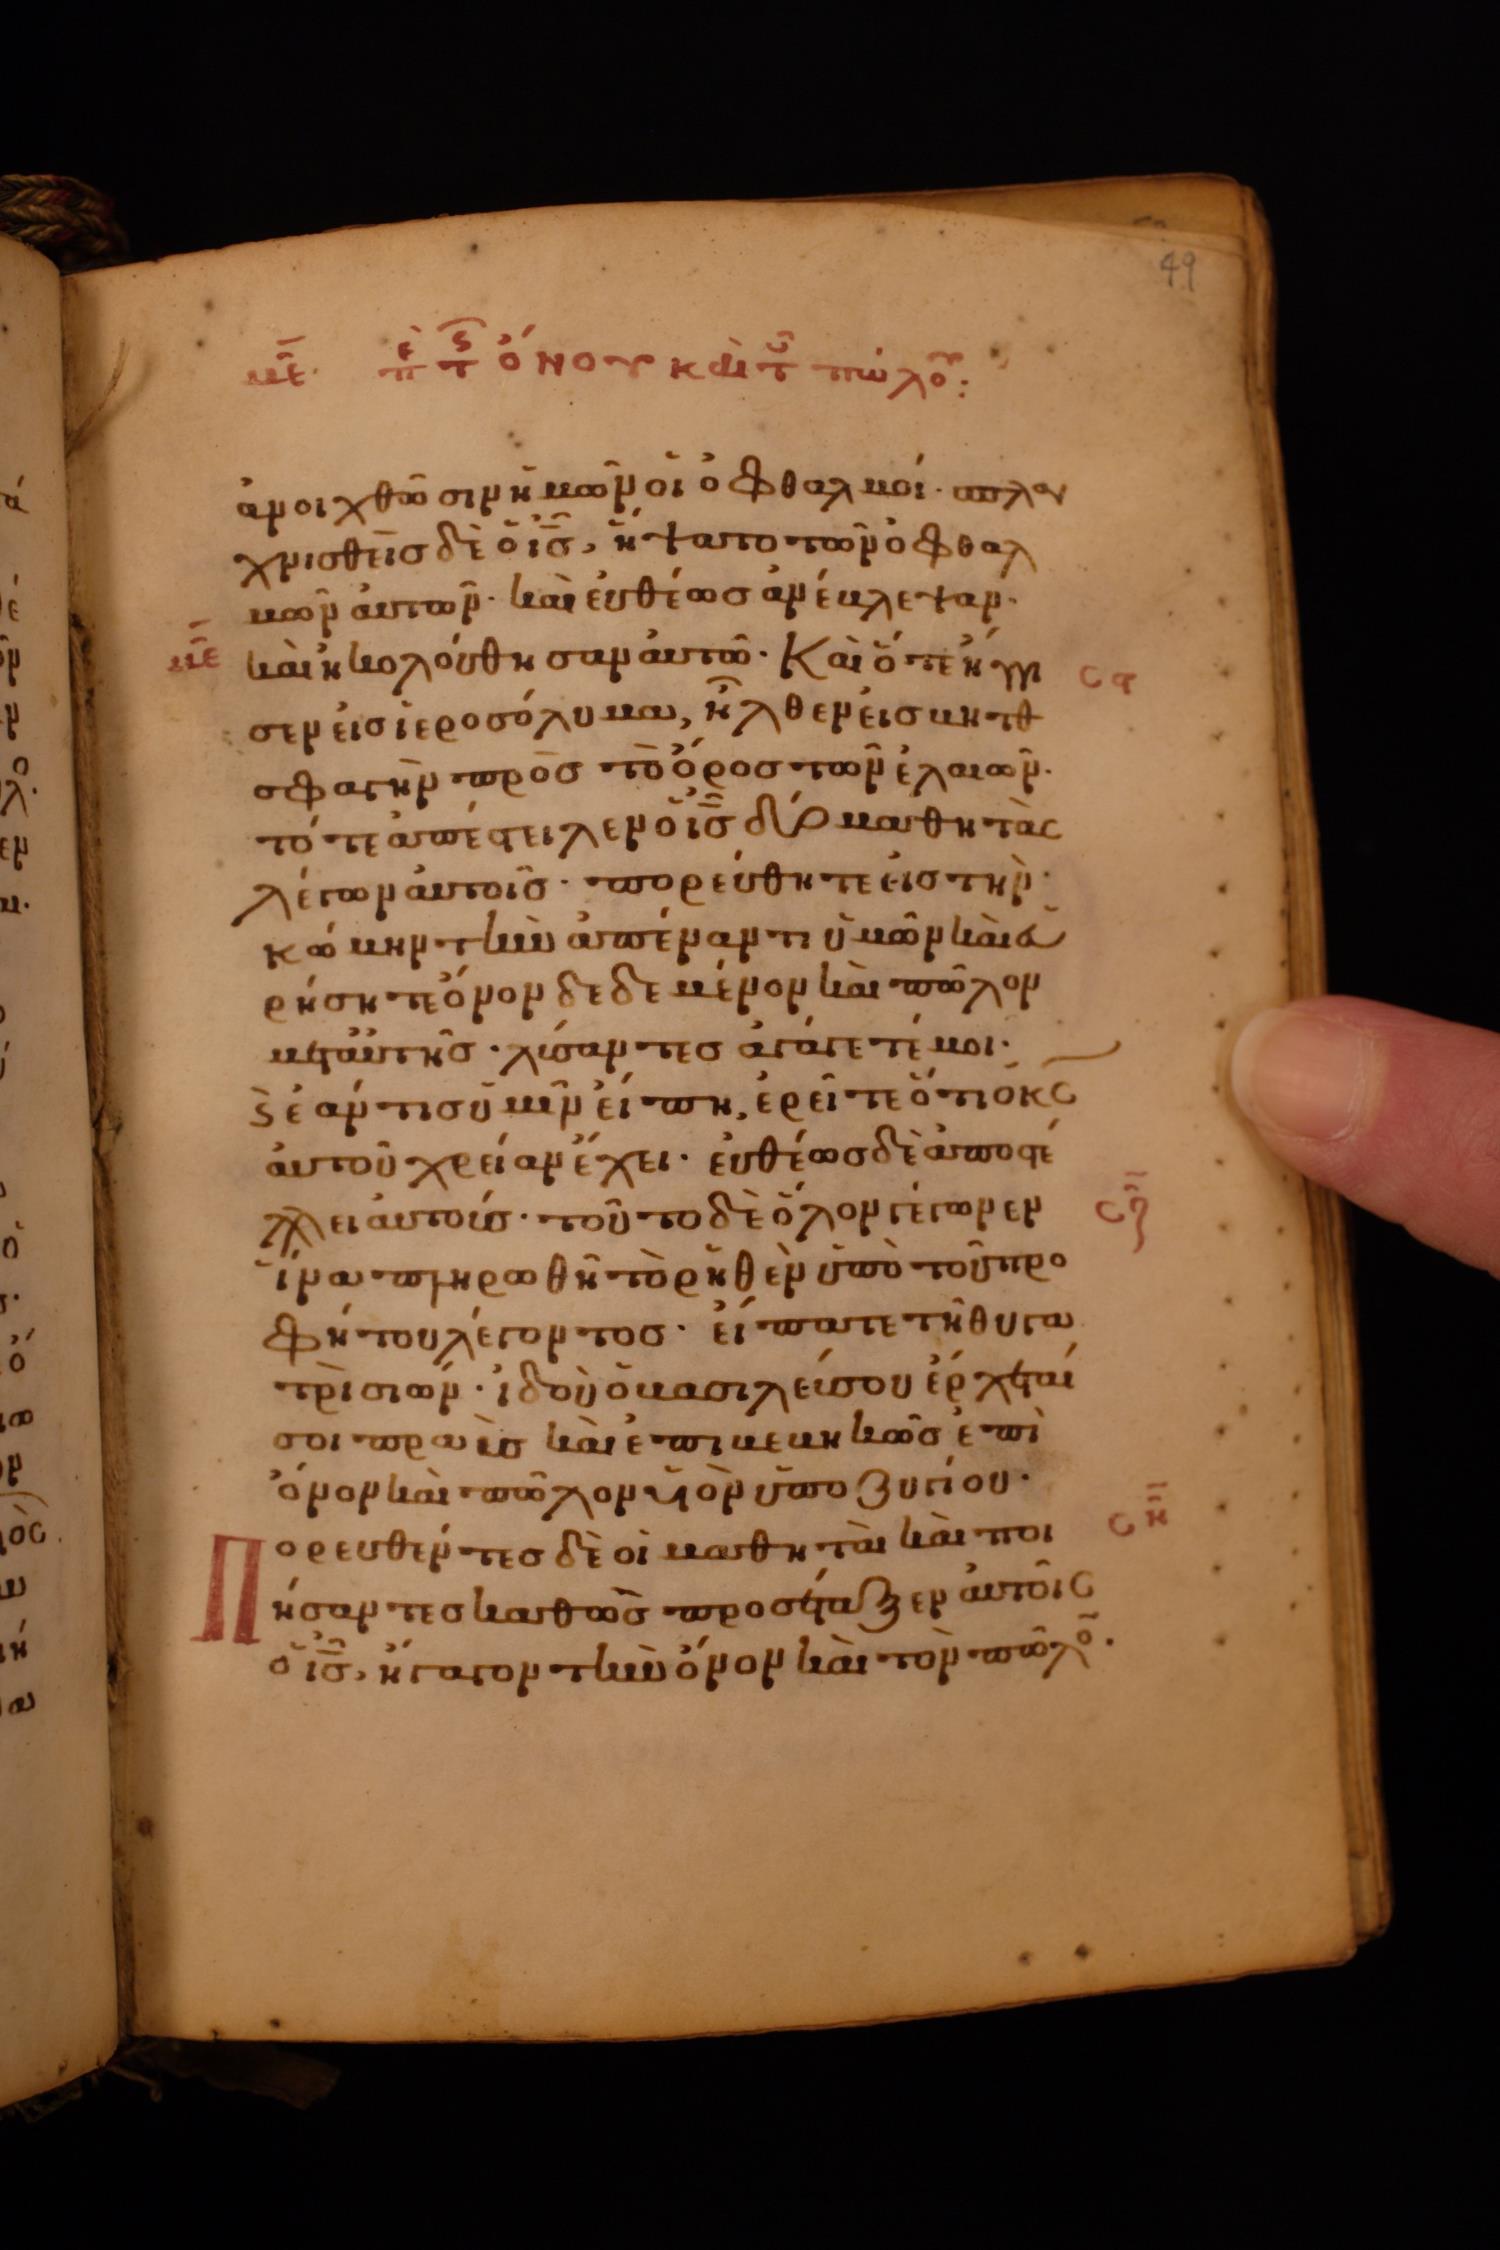 49
με πε τς ὄνου καὶ τ πώλου:
ἀνοιχθῶσιν ἡμῶν οἱ ὀφθαλμοί· σπλαγ
χνισθεὶς δὲ ὁ ις, ἥψατο τῶν ὀφθαλ
μῶν ἀυτῶν· καὶ ἐυθέως ἀνέβλεψαν·
με καὶ ἠκολούθησαν ἀυτῶ· Καὶ ὅτε ἤγγι
σεν εἰς ἱεροσόλυμα, ἦλθεν εἰς βηθ
σφαγὴν πρὸς τὸ ὄρος τῶν ἐλαιῶν·
τότε ἀπέστειλεν ὁ ις δύο μαθητὰς
λέγων ἀυτοῖς· πορεύθητε εἰς τὴν
κώμην τὴν ἀπέναντι ὑμῶν καὶ ἑυ
ρήσητε ὄνον δεδεμένον καὶ πῶλον
μετ' ἀυτῆς· λύσαντες ἀγάγετέ μοι·
κ ἐάν τις ὑμῖν εἴπη, ἐρεῖτε ὅτι ὁ κς
ἀυτοῦ χρείαν ἔχει· ἐυθέως δὲ ἀποστέ
λλει ἀυτούς· τοῦτο δὲ ὅλον γέγωνεν
ἵνα πληρωθῆ τὸ ῥηθὲν ὑπὸ τοῦ προ
φήτου λέγοντος· ἐίπατε τῆ θυγα
τρὶ σιών· ἰδοὺ ὁ βασιλεύς σου ἔρχεταί
σοι πραὺς καὶ ἐπιβεβηκὼς ἐπὶ
ὄνον καὶ πῶλον ὑιὸν ὑποζυγίου·
Πορευθέντες δὲ οἱ μαθηταὶ καὶ ποι
ήσαντες καθὼς προσέταξεν ἀυτοῖς
ὁ ις, ἤγαγον τὴν ὄνον καὶ τὸν πῶλο·